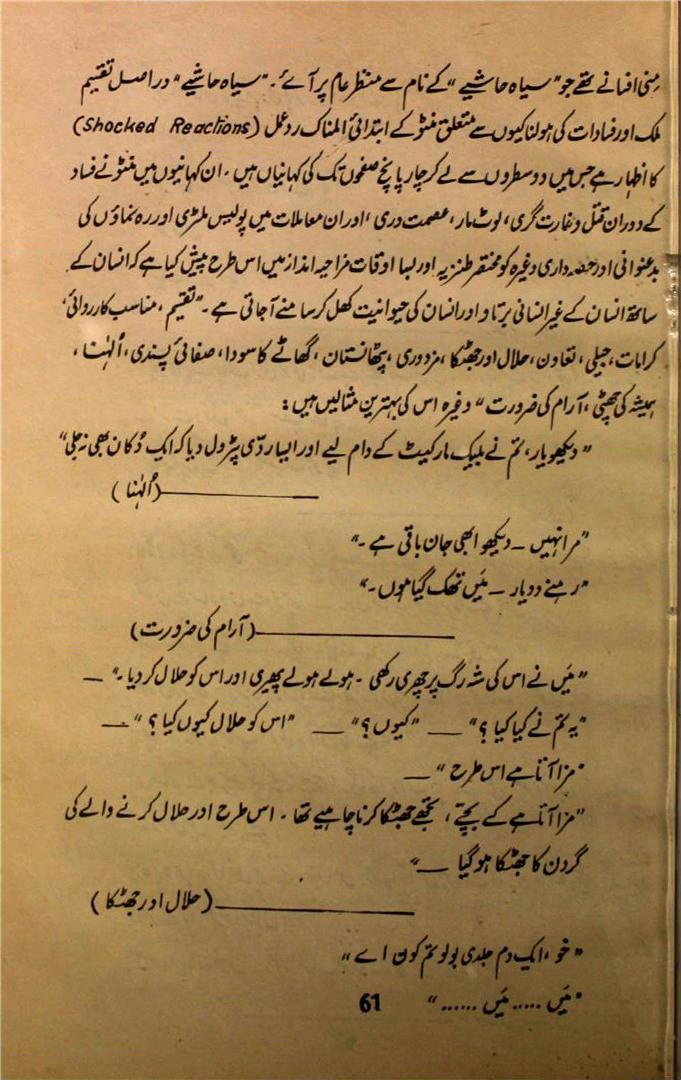 مِنی افسانے تھے جو "سیاہ حاشیے" کے نام سے منظرِ عام پر آئے۔ "سیاہ حاشیے" دراصل تقسیم
ملک اور فسادات کی ہولناکیوں سے متعلق منٹو کے ابتدائی المناک ردِ عمل (Shocked Reactions)
کا اظہار ہے جس میں دو سطروں سے لے کر چار پانچ صفحوں تک کی کہانیاں ہیں۔ ان کہانیوں میں منٹو نے فساد
کے دوران قتل و غارت گری، لوٹ مار، عصمت دری، اور ان معاملات میں پولیس ملٹری اور رہ نماؤں کی
بدعنوانی اور حصہ داری وغیرہ کو مختصر طنزیہ اور بسا اوقات مزاحیہ انداز میں اس طرح پیش کیا ہے کہ انسان کے
ساتھ انسان کے غیر انسانی برتاو اور انسان کی حیوانیت کھل کر سامنے آجاتی ہے۔ "تقسیم، مناسب کارروائی،
کرامات، جیلی، تعاون، حلال اور جھٹکا، مزدوری، پٹھانستان، گھاٹے کا سودا، صفائی پسندی، اُلہنا،
ہمیشہ کی چھٹی، آرام کی ضرورت" وغیرہ اس کی بہترین مثالیں ہیں:
"دیکھو یار، تم نے بلیک مارکیٹ کے دام لیے اور ایسا ردّی پٹرول دیا کہ ایک دُکان بھی نہ جلی"
(اُلہنا)
"مرا نہیں ۔ دیکھو ابھی جان باقی ہے۔"
"رہنے دو یار ۔ مَیں تھک گیا ہوں۔"
(آرام کی ضرورت)
"مَیں نے اس کی شہ رگ پر چھری رکھی۔ ہولے ہولے پھیری اور اس کو حلال کر دیا۔" —
"یہ تم نے کیا کیا؟" — "کیوں؟" — "اس کو حلال کیوں کیا؟" —
"مزا آتا ہے اس طرح" —
"مزا آتا ہے کے بچّے، تجھے جھٹکا کرنا چاہیے تھا۔ اس طرح اور حلال کرنے والے کی
گردن کا جھٹکا ہو گیا —"
(حلال اور جھٹکا)
"خو، ایک دم جلدی بولو تم کون اے"
"مَیں ..... مَیں ......"
61